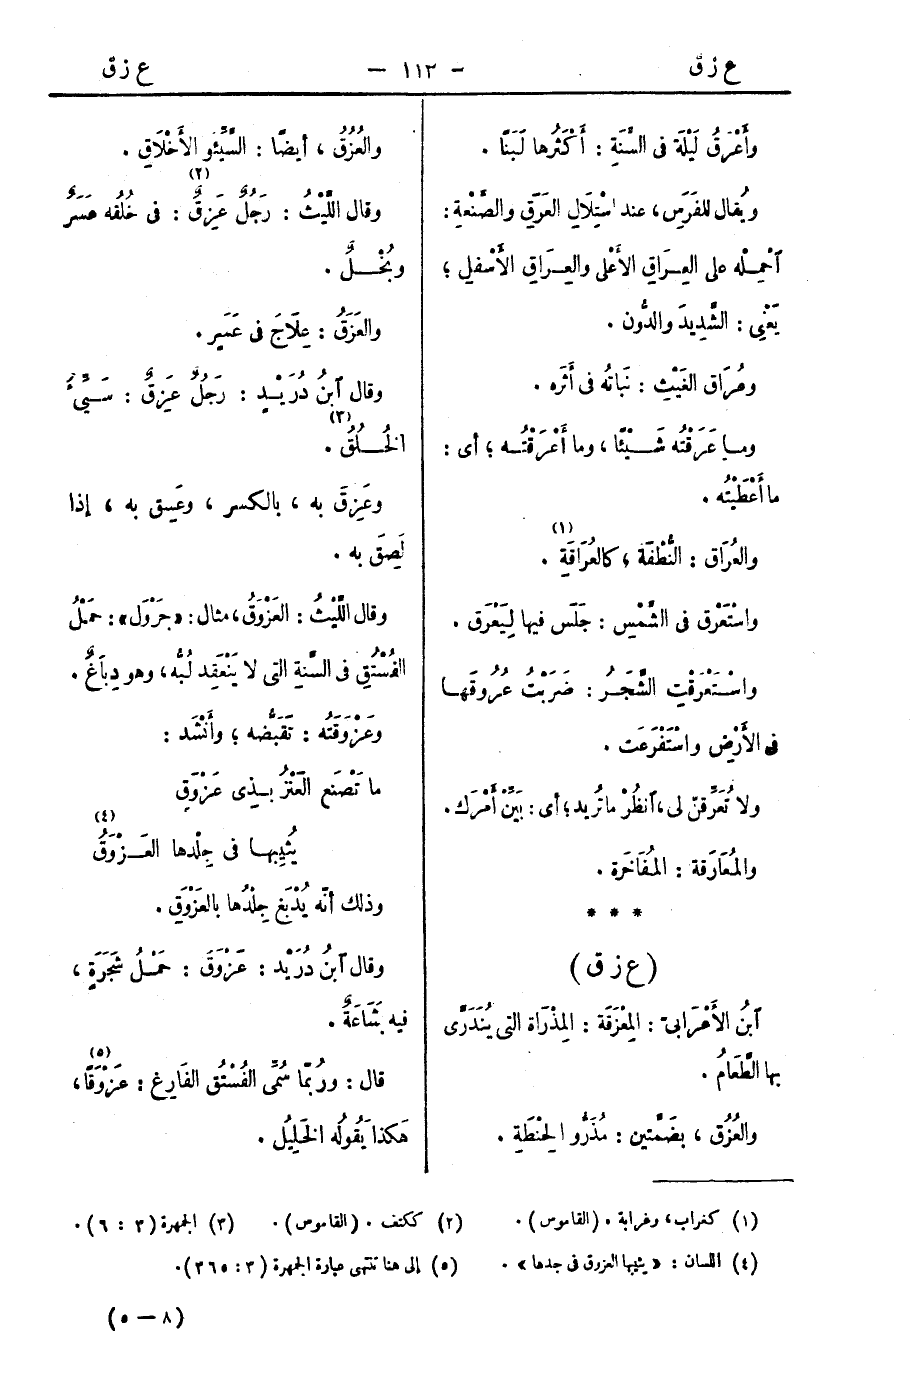 ع زق
- ١١٣ -
ع زق
وأَعْرَقُ لَيْلَة فى السَّنَةِ : أَكْثَرُها لَبَنًا .
ويُقال للفَرَس، عند اسْتِلَالِ العَرَقِ والصَّنْعة:
آحْمِلْه على العِـرَاقِ الأَعْلَى والعِـرَاقِ الأَسْفل ؛
يَعْنِى : الشَّدِيدَ والدُّون .
وعُرَاق الغَيْثِ : نَبَاتُه فى أَثَره .
وما عَرَقْتُه شَـيْئًا ، وما أَعْرَقْتُـه ؛ أى :
ما أَعْطَيْتُه .
والعُرَاق : النُّطْفَة ؛ كالعُرَاقَةِ (١) .
واسْتَعْرَق فى الشَّمْسِ : جَلَس فيها لِيَعْرَق .
واسْـتَعْرَقَتِ الشَّجَـرُ : ضَرَبَتْ عُرُوقَهـا
فى الأَرْضِ واسْتَفْرَعَت .
ولا تُعَرِّقنّ لى، آنظُرْ ما تُريد؛ أى : بَيِّنْ أَمْرَك .
والمُعَارَقة : المُفَاخَرة .
* * *
(ع زق)
آبنُ الأَعْرَابىّ : المِعْزَقَة : المِذْرَاة التى يُتَذَرَّى
بها الطَّعَامُ .
والعُزُق ، بضَمَّتين : مُذَرُّو الحِنْطَةِ .
والعُزُقُ ، أيضًا : السَّيِّئُو الأَخْلَاقِ .
وقال اللَّيْثُ : رَجُلٌ عَزِقٌ (٢) : فى خُلُقه عَسَرٌ
وبُخْـلٌ .
والعَزَقُ : عِلَاجٌ فى عَسَرٍ .
وقال آبنُ دُرَيْـدٍ : رَجُلٌ عَزِقٌ : سَـيِّئُ
الخُـلُقِ (٣) .
وعَزِقَ به ، بالكسر ، وعَسِق به ، إذا
لَصِقَ به .
وقال اللَّيْثُ : العَزْوَقُ، مثال : «جَرْوَل» : حَمْلُ
الفُسْتُقِ فى السَّنَةِ التى لا يَنْعَقِد لُبُّه، وهو دِبَاغٌ .
وعَزْوَقَتُه : تَقَبُّضه ؛ وأَنْشَد :
ما تَصْنَع العَنْزُ بـذِى عَزْوَقٍ
يُثيبُهـا فى جِلْدها العَـزْوَقُ (٤)
وذلك أنّه يُدْبَغ جِلْدُها بالعَزْوَقِ .
وقال آبنُ دُرَيْد : عَزْوَق : حَمْـلُ شَجَرَةٍ ،
فيه بَشَاعَةٌ .
قال : ورُبّما سُمِّى الفُسْتُق الفَارِغ : عَزْوَقًا (٥)،
هَكذا يَقُولُه الخَلِيلُ .
(١) كغراب، وغرابة . (القاموس) . (٢) ككتف . (القاموس) . (٣) الجمهرة (٣ : ٦) .
(٤) اللسان : « يثيبها العزوق فى جلدها » . (٥) إلى هنا تنتهى عبارة الجمهرة (٣ : ٣٦٥).
(٨ — ٥)